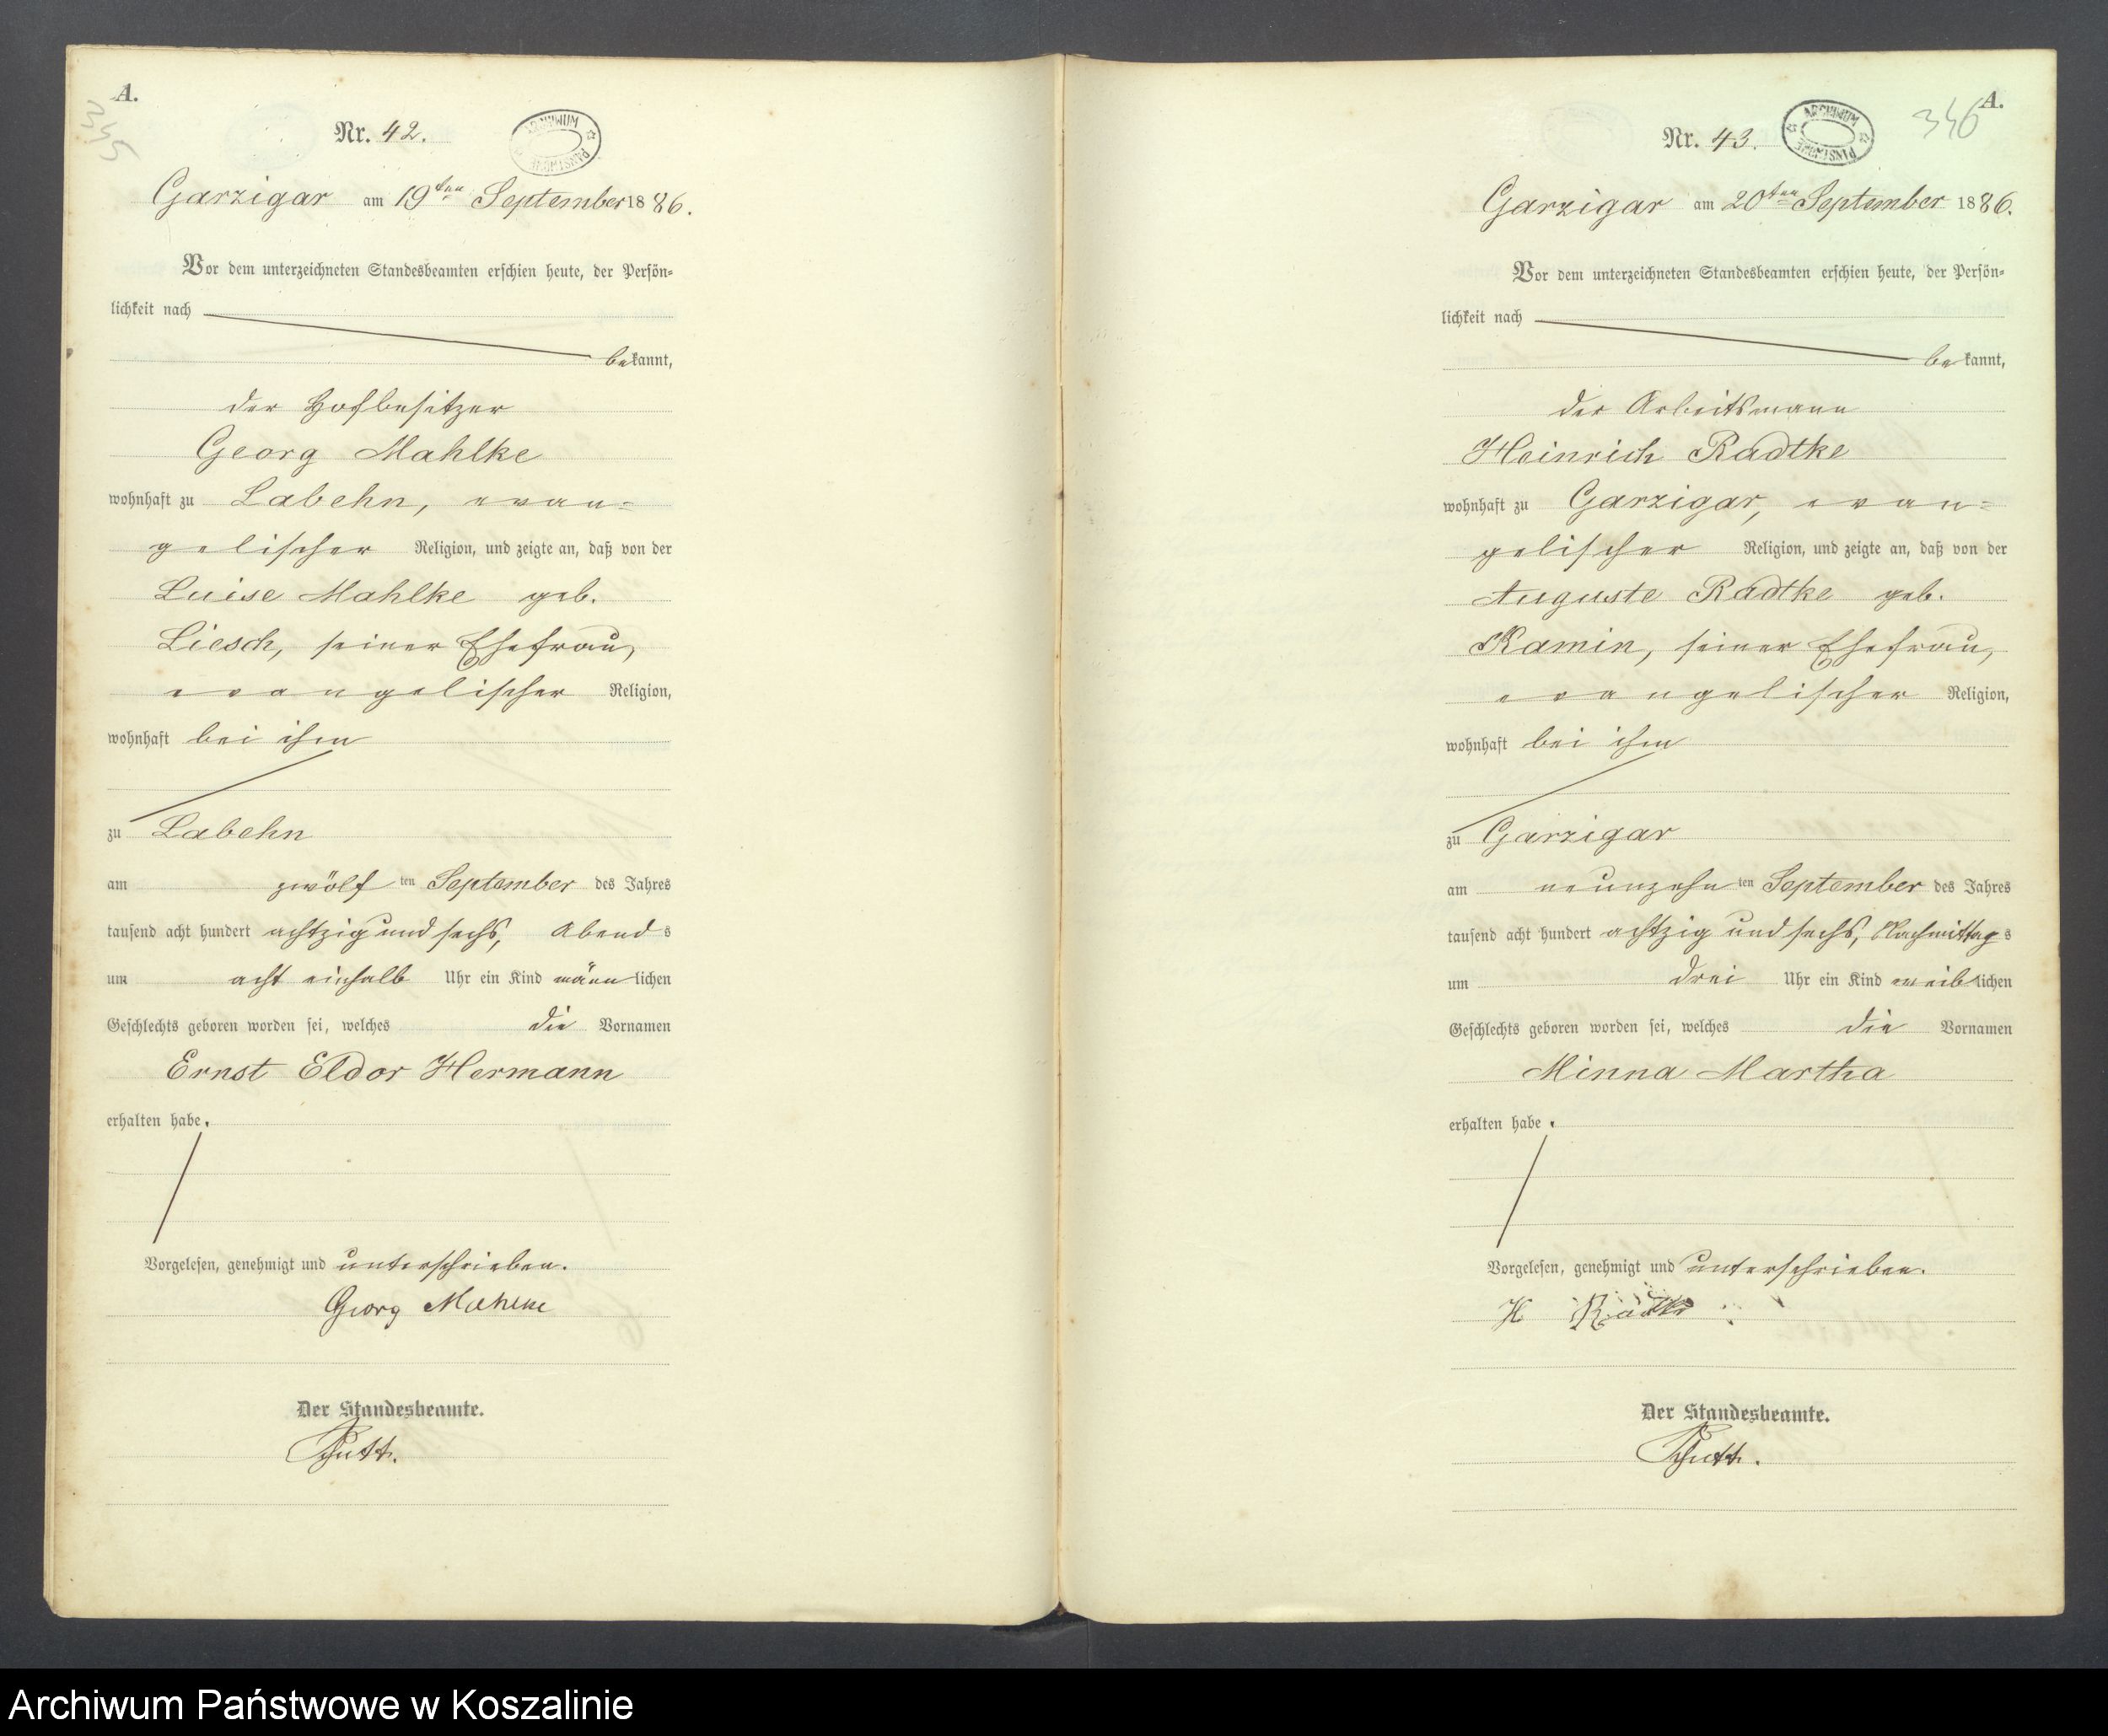 A.
345
Nr. 42.
ARCHIWUM PAŃSTWOWE
Garzigar am 19ten September 1886.
Vor dem unterzeichneten Standesbeamten erschien heute, der Persön=
lichkeit nach
bekannt,
der Hofbesitzer
Georg Mahlke
wohnhaft zu Labehn, evan=
gelischer Religion, und zeigte an, daß von der
Luise Mahlke geb.
Liesch, seiner Ehefrau,
evangelischer Religion,
wohnhaft bei ihm
zu Labehn
am zwölf ten September des Jahres
tausend acht hundert achtzig und sechs, Abends
um acht einhalb Uhr ein Kind männlichen
Geschlechts geboren worden sei, welches die Vornamen
Ernst Eldor Hermann
erhalten habe.
Vorgelesen, genehmigt und unterschrieben.
Georg Mahlke
Der Standesbeamte.
A.
346
Nr. 43.
ARCHIWUM PAŃSTWOWE
Garzigar am 20ten September 1886.
Vor dem unterzeichneten Standesbeamten erschien heute, der Persön=
lichkeit nach
bekannt,
der Arbeitsmann
Heinrich Radtke
wohnhaft zu Garzigar, evan=
gelischer Religion, und zeigte an, daß von der
Auguste Radtke geb.
Kamin, seiner Ehefrau,
evangelischer Religion,
wohnhaft bei ihm
zu Garzigar
am neunzehn ten September des Jahres
tausend acht hundert achtzig und sechs, Nachmittags
um drei Uhr ein Kind weiblichen
Geschlechts geboren worden sei, welches die Vornamen
Minna Martha
erhalten habe.
Vorgelesen, genehmigt und unterschrieben.
H Radtke
Der Standesbeamte.
Archiwum Państwowe w Koszalinie